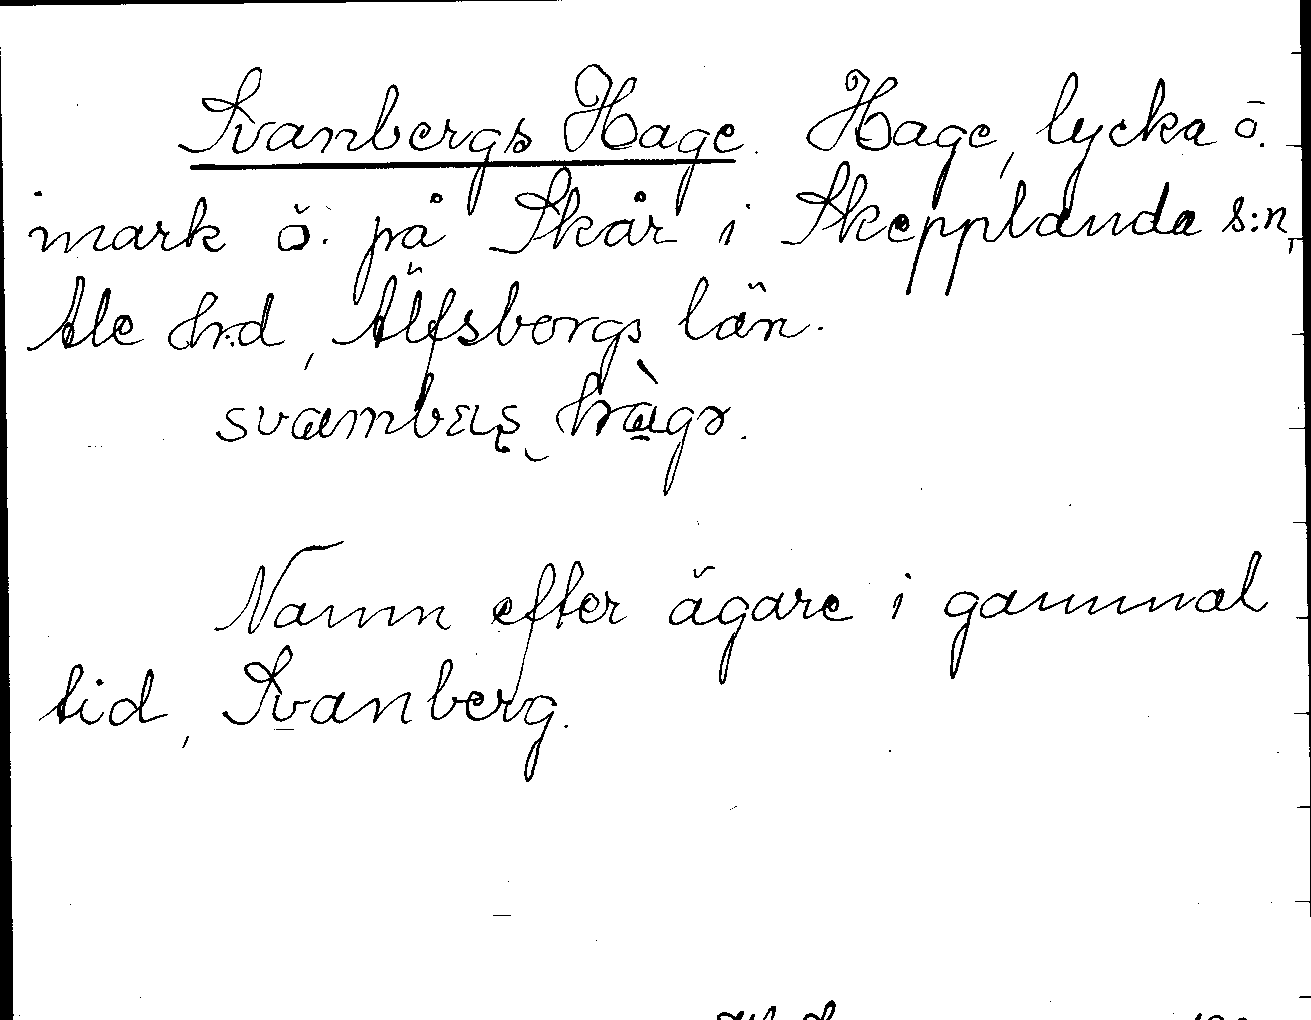 Svanbergs Hage. Hage, lycka ö.
mark ö. på Skår i Skepplanda s:n,
Ale hrd, Älfsborgs län.
Namn efter ägare i gammal
tid, Svanberg.